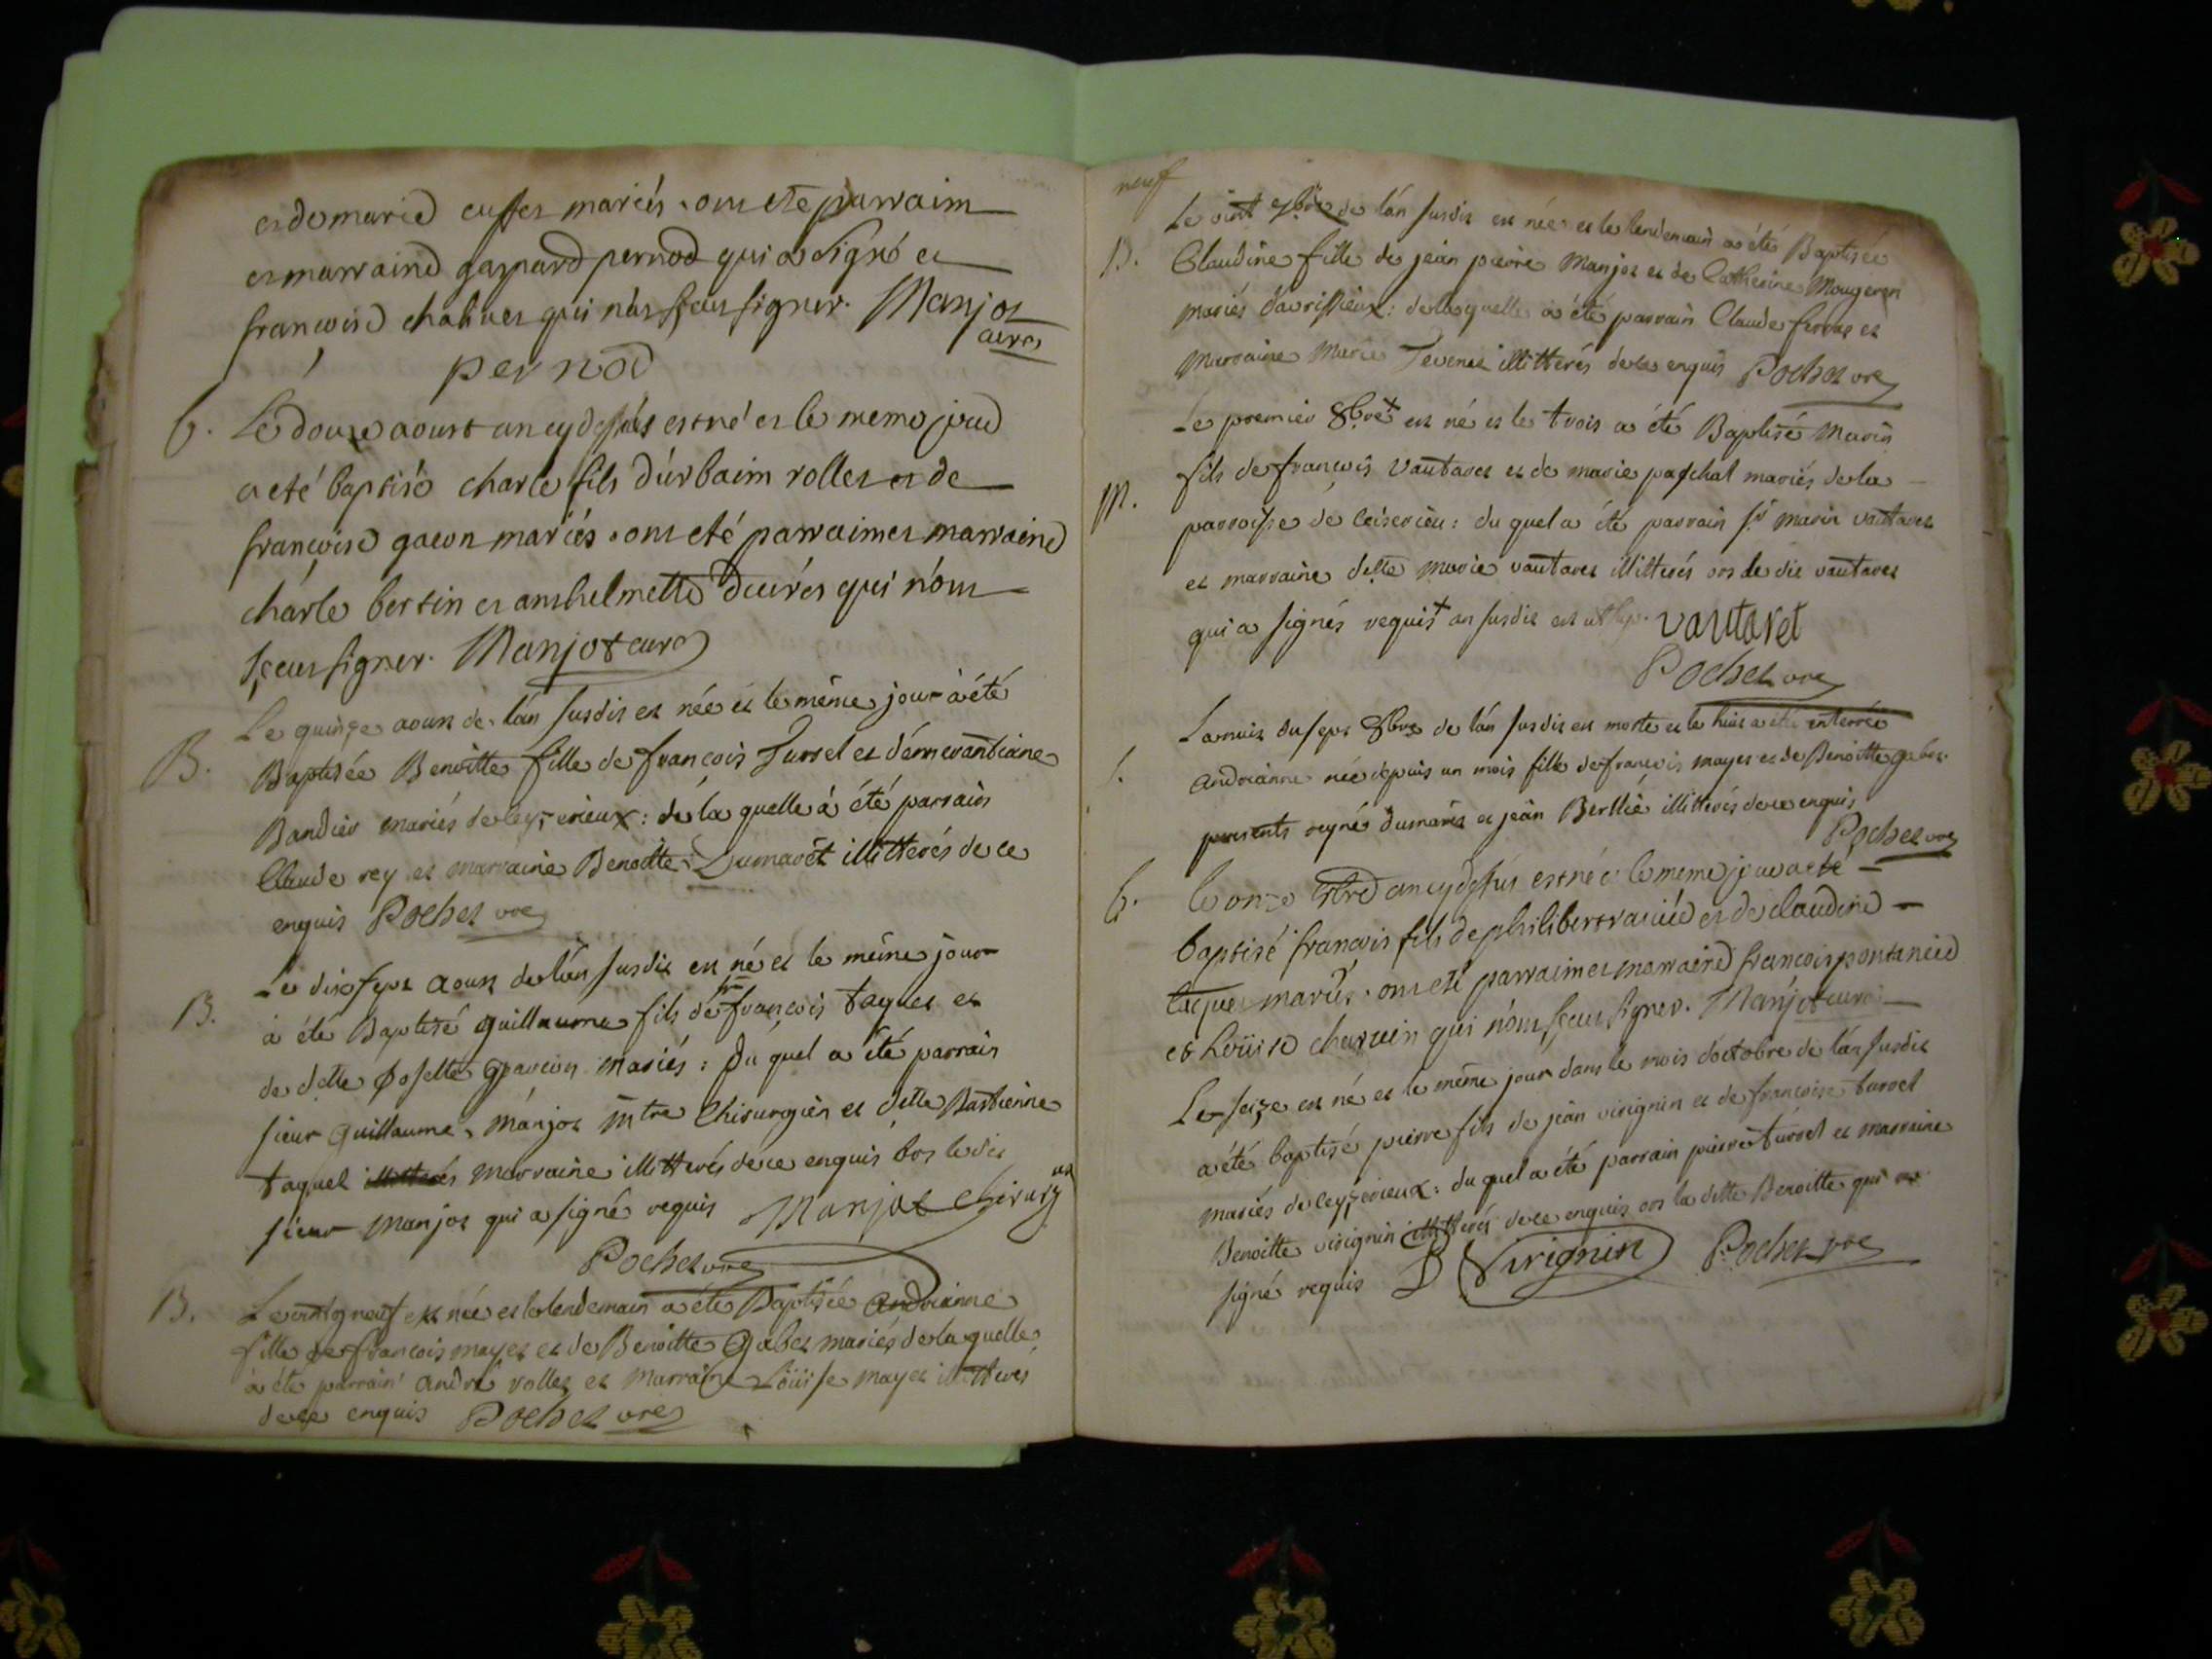 et de marie cusset mariés. ont eté parraim
et marraine gaspard pernod qui a signé et
francoise chalivet qui n'as sçeut signer. Manjot
curé
pernod
b. Le douze aoust an cy dessus est né et le meme jour
a eté baptisé charle fils d'urbaim rollet et de
francoise gacon mariés. ont eté parraim et marraine
charle bertin et anthelmette qui n'ont
sçeut signer. Manjot curé
Le quinze aoust de l'an susdit est née et le même jour à été
B. Baptisée Benoitte fille de francois Turrel et d'émerantiane
Bandier mariés de leyzerieux: de la quelle à été parrain
Claude rey et marraine Benoitte Dumarêt illitterés de ce
enquis Pochet vre
Le dix sept aoust de l'an susdit est né et le même jour
B. à été Baptisé guillaume fils de sr francois taquet et
de delle Josette mariés: du quel a été parrain
sieur Guillaume Manjot mtre Chirurgien et delle Bastienne
taquet marraine illitterés de ce enquis ors le dit
sieur Manjot qui a signé requis Manjot chirurgn
Pochet vre
B. Le vintg neuf est née et le lendemain a été Baptisée andréanne
fille de francois mayet et de Benoitte Gabet mariés de la quelle
à été parrain andré rollet et marraine Löuise mayet illitterés
de ce enquis Pochet vre
neuf
Le vint 7bre de l'an susdit est née et le lendemain a été Baptisée
B. Claudine fille de jean pierre Manjot et de Catherine Mougeron
mariés d'avrissieux: de la quelle a été parrain Claude ferrat et
Marraine Marie Tevenet illitterés de ce enquis Pochet vre
Le premier 8bre est né et le trois a été Baptisé Marin
fils de francois Vautaret et de marie paschal mariés de la
m. parroisse de Ceiserieu: du quel a été parrain sr marin vautaret
et marraine delle marie vautaret illitterés ors le dit vautaret
qui a signés requis an susdit vautaret
Pochet vre
La nuit du sept 8bre de l'an susdit est morte et le huit a été enterrée
andréanne née depuis un mois fille de francois mayet et de Benoitte gabet
presents reymé dumarêt et jean Berthié illitterés de ce enquis
Pochet vre
b. le onze 8bre an cy dessus est né et le meme jour a eté
baptisé francois fils de philibert et de claudine
taquet mariés. ont eté parraim et marraine francois pontanier
et Loüise charvin qui n'ont sçeut signer. Manjot curé
Le seize est né et le même jour dans le mois d'octobre de l'an susdit
a été baptisé pierre fils de jean virignin et de francoise turrel
mariés de leyzerieux: du quel a été parrain pierre turrel et marraine
Benoitte virignin illitterés de ce enquis ors la ditte Benoitte qui a
signé requis B Virignin Pochet vre